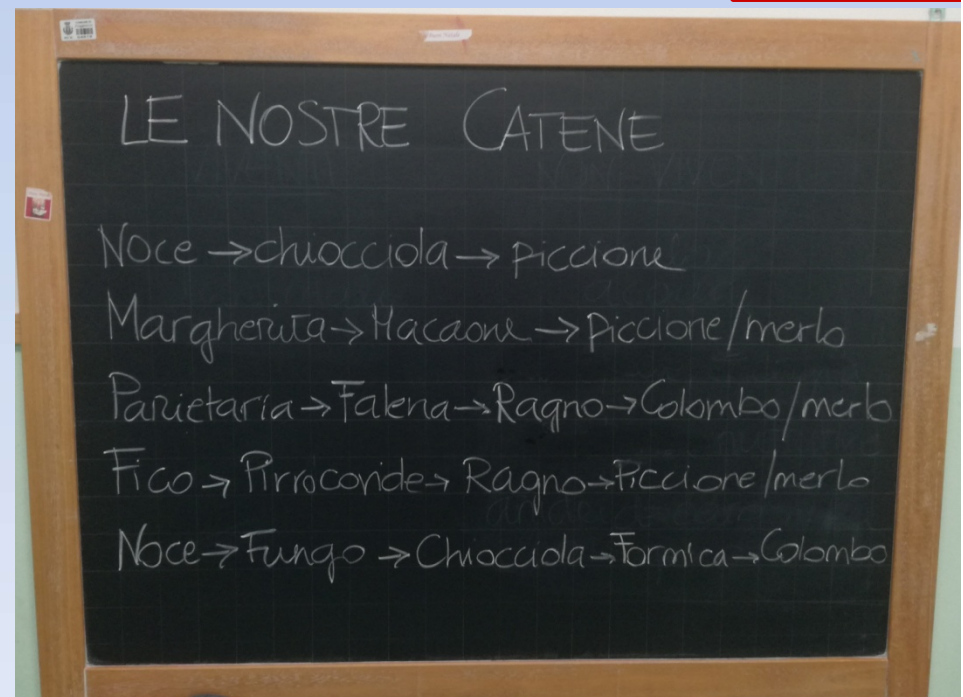 LE NOSTRE CATENE
Noce → chiocciola → piccione
Margherita → Macaone → piccione/merlo
Parietaria → Falena → Ragno → Colombo/merlo
Fico → Pirrocoride → Ragno → Piccione/merlo
Noce → Fungo → Chiocciola → Formica → Colombo